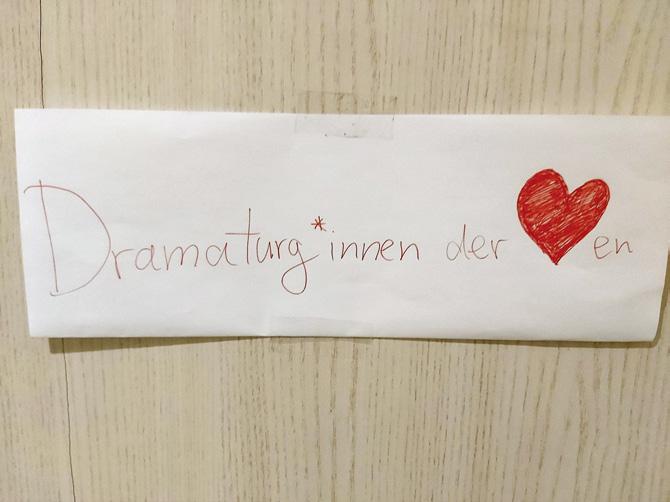 Dramaturg*innen der ❤en